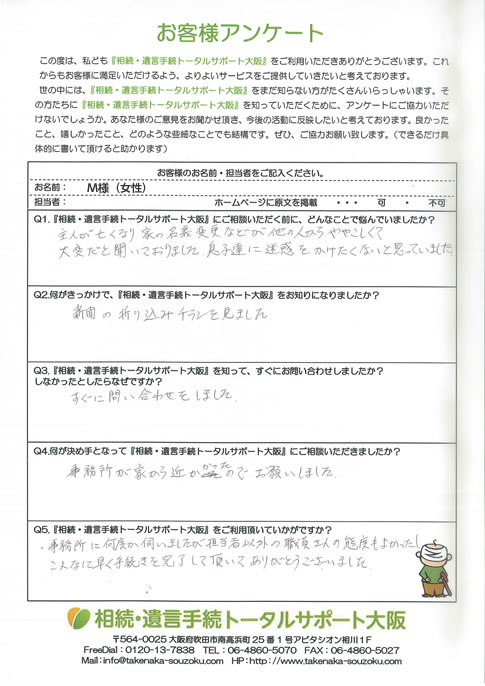 お客様アンケート
この度は、私ども『相続・遺言手続トータルサポート大阪』をご利用いただきありがとうございます。これ
からもお客様に満足いただけるよう、よりよいサービスをご提供していきたいと考えております。
世の中には、『相続・遺言手続トータルサポート大阪』をまだ知らない方がたくさんいらっしゃいます。そ
の方たちに『相続・遺言手続トータルサポート大阪』を知っていただくために、アンケートにご協力いただ
けないでしょうか。あなた様のご意見をお聞かせ頂き、今後の活動に反映したいと考えております。良かった
こと、嬉しかったこと、どのような些細なことでも結構です。ぜひ、ご協力お願い致します。（できるだけ具
体的に書いて頂けると助かります）
お客様のお名前・担当者をご記入ください。
お名前： M様（女性）
担当者： ホームページに原文を掲載 ・・・ 可 ・ 不可
Q1.『相続・遺言手続トータルサポート大阪』にご相談いただく前に、どんなことで悩んでいましたか？
主人が亡くなり家の名義変更などが他の人からややこしくて
大変だと聞いておりました 息子達に迷惑をかけたくないと思っていました。
Q2.何がきっかけで、『相続・遺言手続トータルサポート大阪』をお知りになりましたか？
新聞の折り込みチラシを見ました
Q3.『相続・遺言手続トータルサポート大阪』を知って、すぐにお問い合わせしましたか？
しなかったとしたらなぜですか？
すぐに問い合わせをしました。
Q4.何が決め手となって『相続・遺言手続トータルサポート大阪』にご相談いただきましたか？
事務所が家から近かったのでお願いしました。
Q5.『相続・遺言手続トータルサポート大阪』をご利用頂いていかがですか？
・事務所に何度か伺いましたが担当者以外の職員さんの態度もよかったし
こんなに早く手続きを完了して頂いてありがとうございました。
相続・遺言手続トータルサポート大阪
〒564-0025 大阪府吹田市南高浜町25番1号アビタシオン相川1F
FreeDial：0120-13-7838 TEL：06-4860-5070 FAX：06-4860-5027
Mail：info@takenaka-souzoku.com HP：http://www.takenaka-souzoku.com